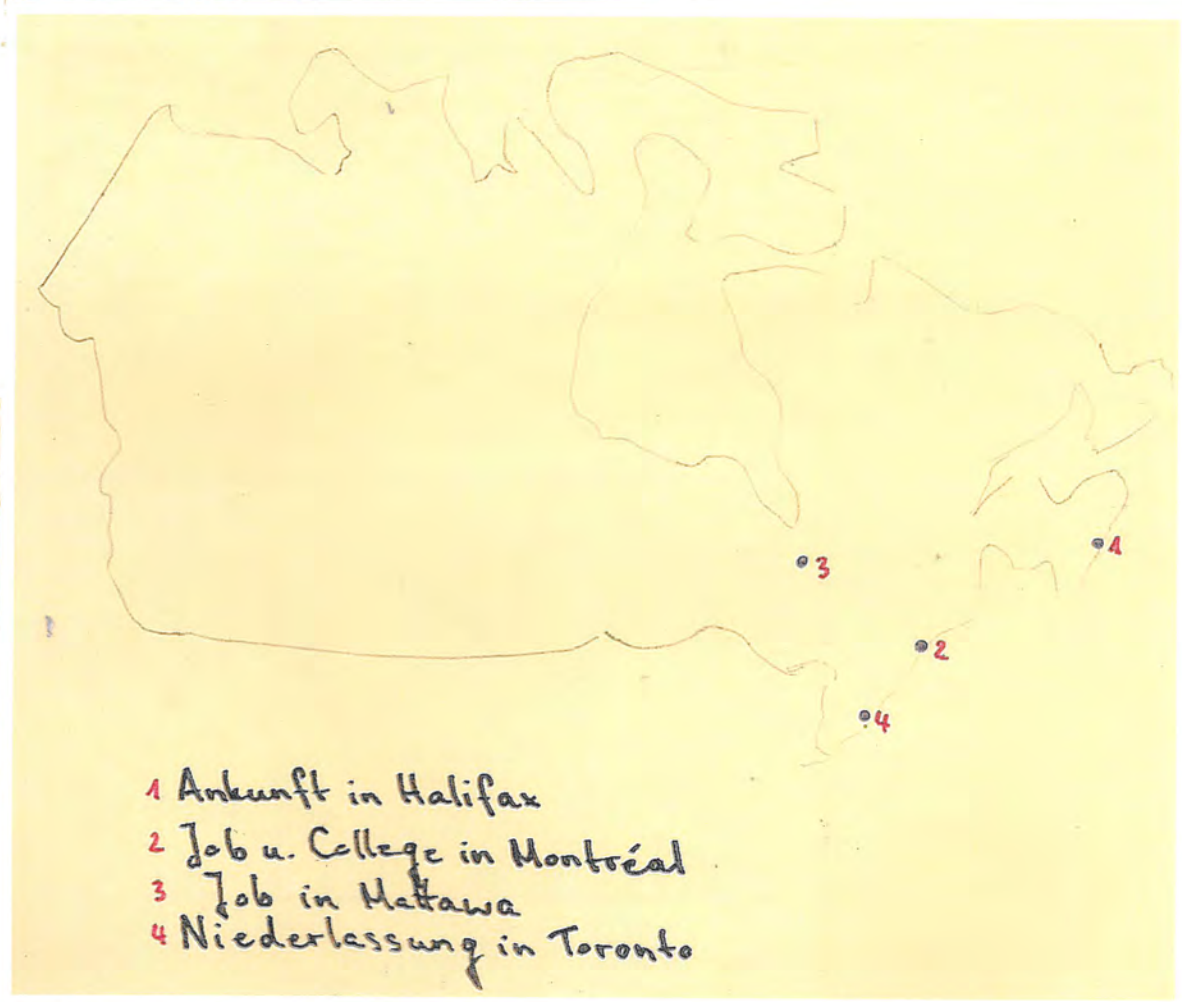 3
1
2
4
1 Ankunft in Halifax
2 Job u. College in Montréal
3 Job in Mattawa
4 Niederlassung in Toronto